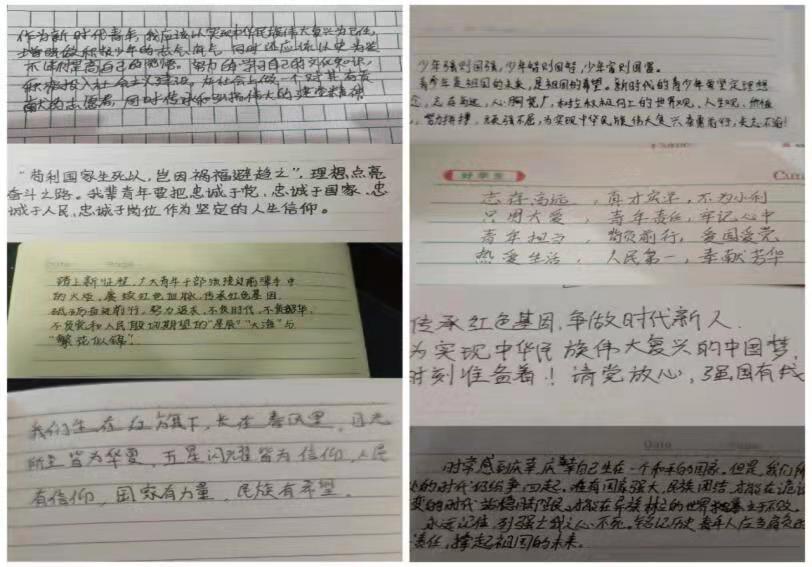 作为新时代青年,我应该以实现中华民族伟大复兴为己任,
增强做积极少年的志气、骨气,同时还应该以史为鉴
不断提高自己的觉悟。努力的学习自己的文化知识,
积极投入社会主义建设,在社会上做一个对其有贡
献的志愿者,同时传承和弘扬伟大的建党精神
"苟利国家生死以,岂因祸福避趋之",理想点亮
奋斗之路。我辈青年要把忠诚于党、忠诚于国家、忠
诚于人民、忠诚于岗位作为坚定的人生信仰。
踏上新征程,广大青年干部须接过前辈手中
的火炬,赓续红色血脉,传承红色基因,
砥砺奋进前行,努力追求,不负时代,不负韶华,
不负党和人民殷切期望的"星辰""大海"与
"繁花似锦"
我们生在红旗下,长在春风里,目光
所至皆为华夏,五星闪耀皆为信仰,人民
有信仰,国家有力量,民族有希望。
少年强则国强,少年智则国智,少年富则国富。
青少年是祖国的未来,是祖国的希望。新时代的青少年要坚定理想
志存高远,心胸宽广,树立积极向上的世界观,人生观,价值
努力拼搏,顽强不屈,为实现中华民族伟大复兴奋勇前行,矢志不渝!
好学生
志存高远,真才实学,不为小利
只因大爱,青年责任,牢记心中
青年担当,负前行,爱国爱党
热爱生活,人民第一,奉献芳华
传承红色基因,争做时代新人.
为实现中华民族伟大复兴的中国梦,
时刻准备着!请党放心,强国有我
时常感到庆幸,庆幸自己生在一个和平的国家。但是,我们所
处的时代仍纷争四起。唯有国家强大,民族团结,才能在诡谲
变的时代站稳脚跟,才能在民族林立的世界立于不败。
永远记住,列强士我之心不死。铭记历史青年人应当肩负起
责任,撑起祖国的未来。